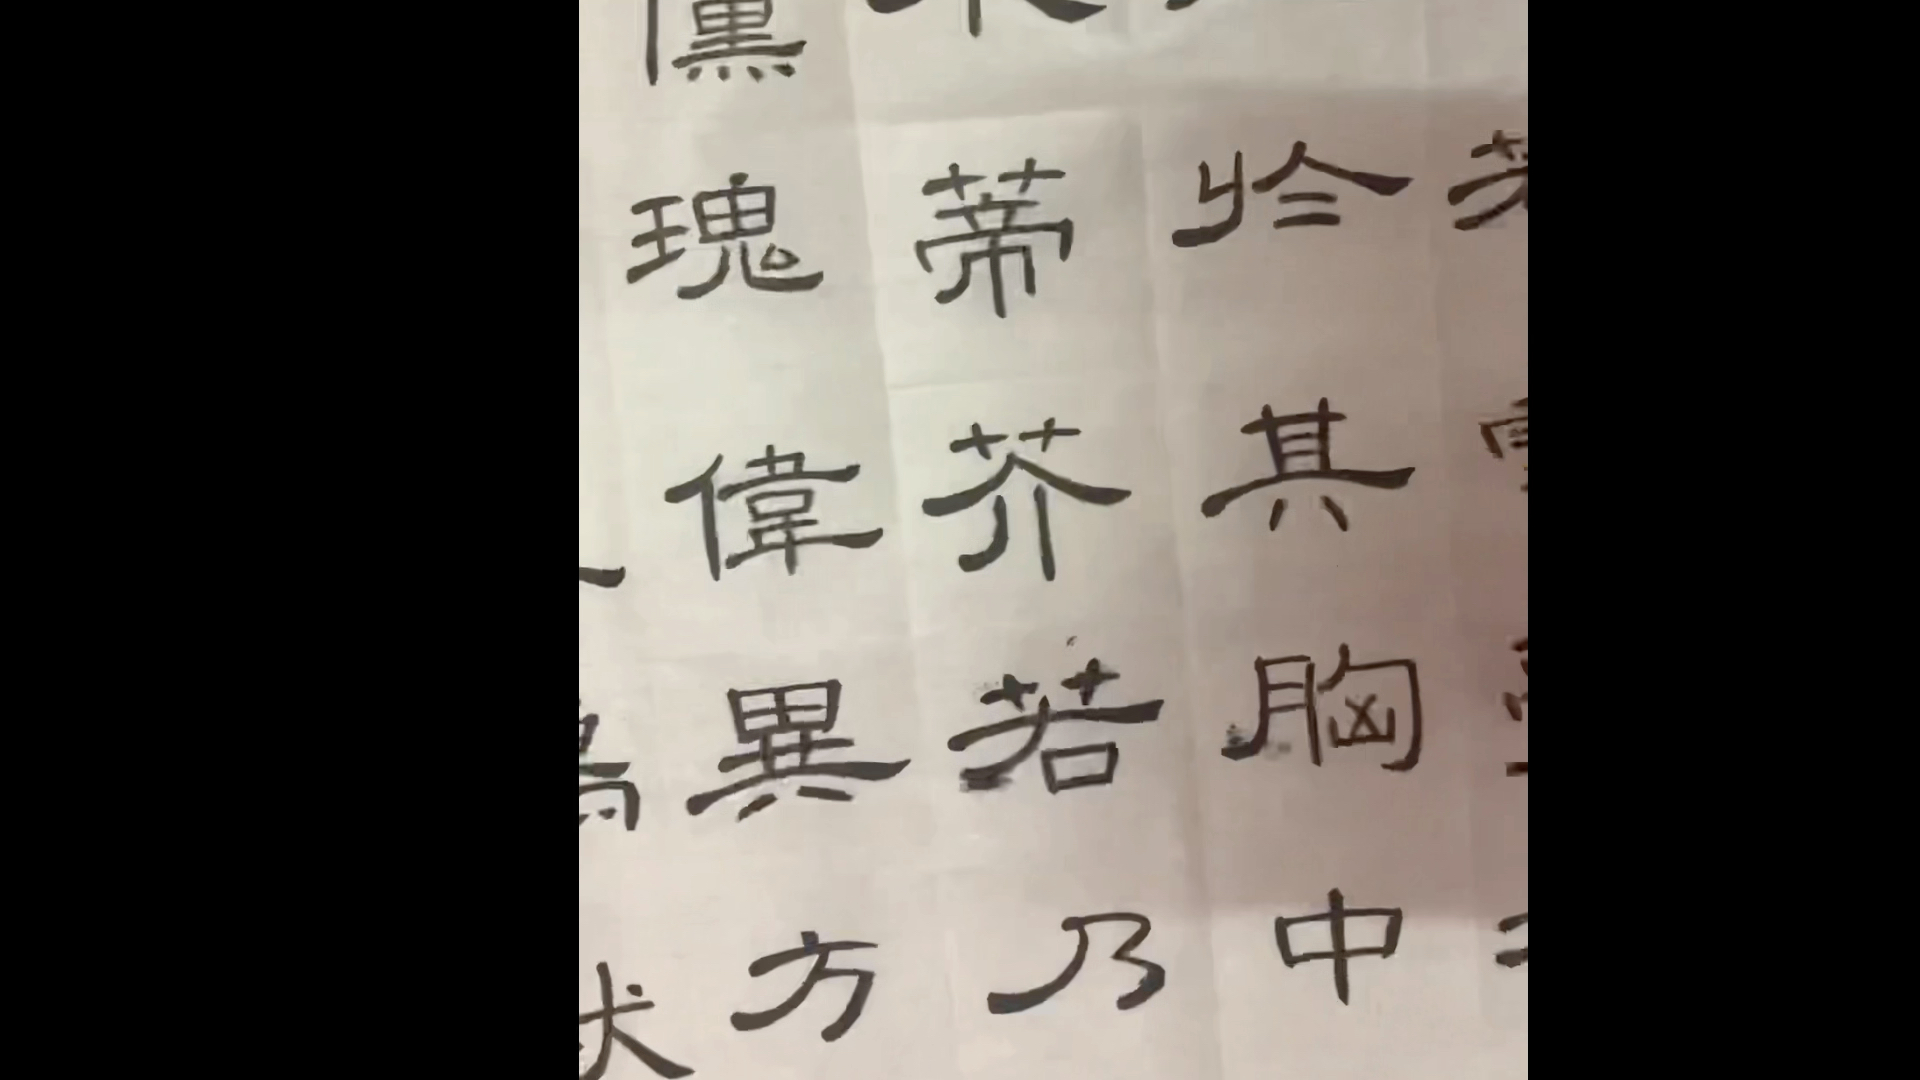 於其胸中
蒂芥若乃
儻瑰偉異方